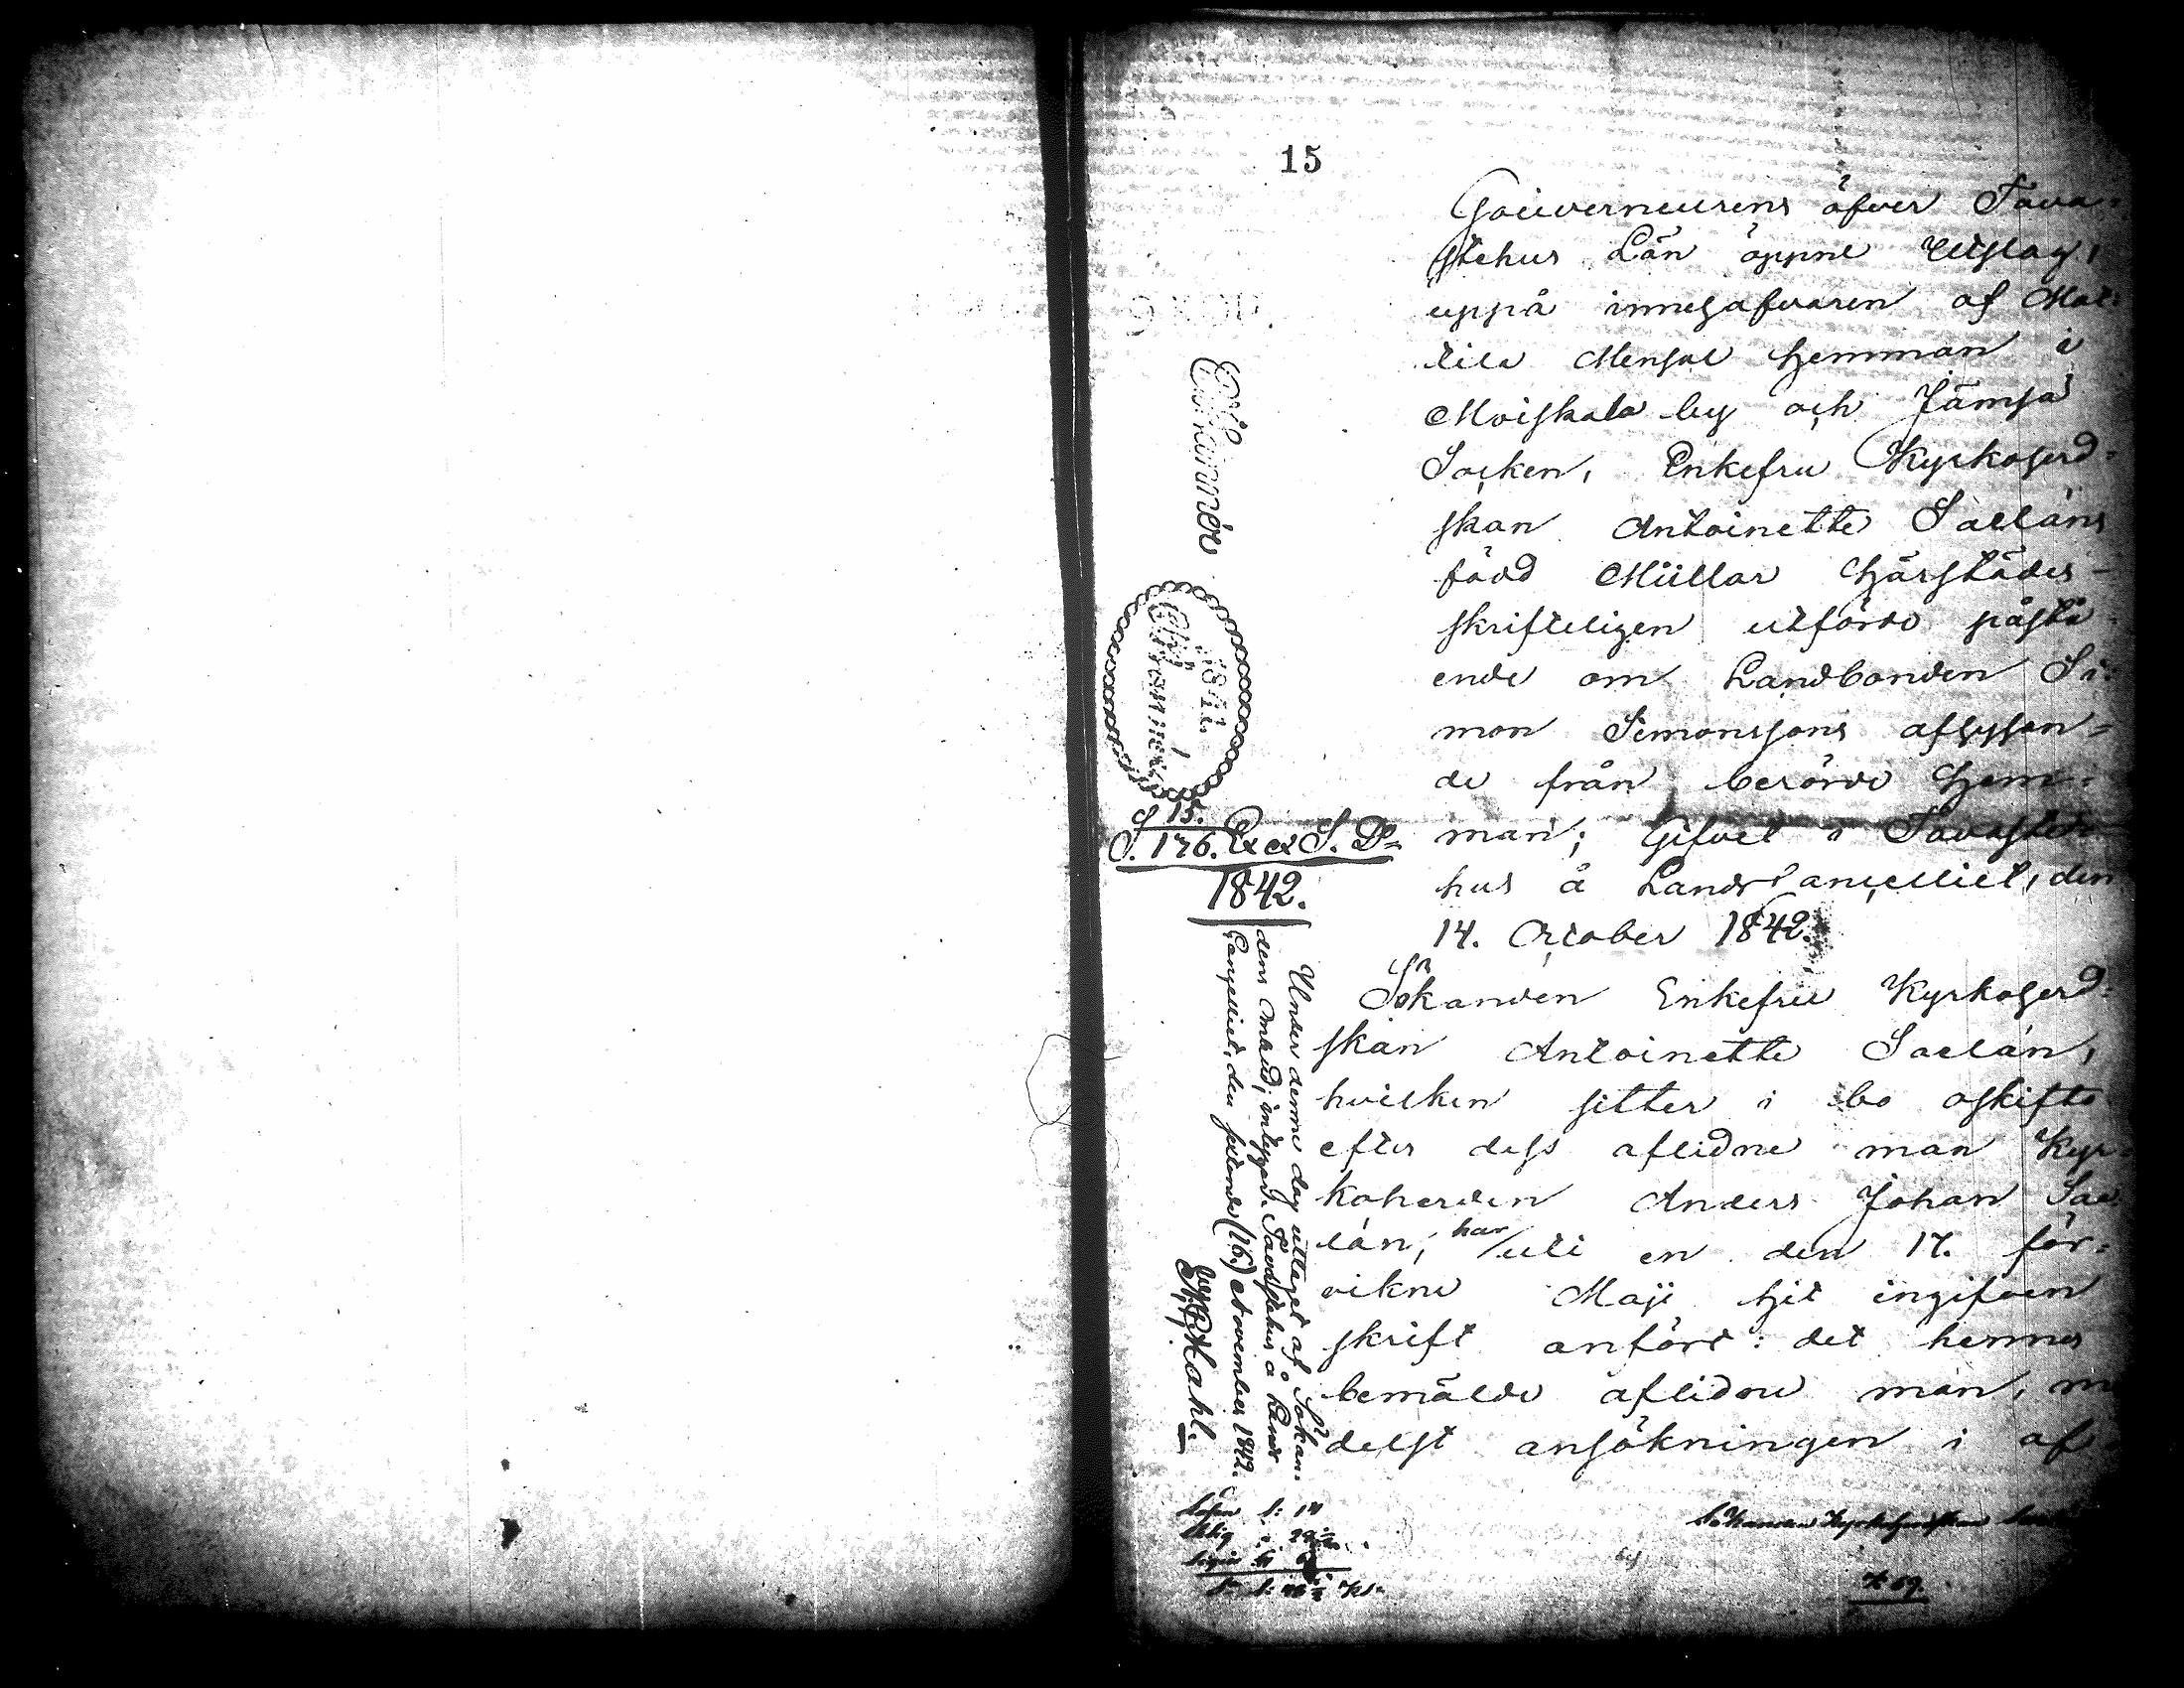 15
Gouverneurens öfver Tava-
stehus Län öppne Utslag,
uppå innehafvaren af Mat-
tila Mensal hemman i
Moiskala by och Jämsä
Socken, Enkefru Kyrkoherd-
skan Antoinette Saeláns
född Müllar härstädes
skrifteligen utförde påstå-
ende om Landbonden Si-
mon Simonssons afhysan-
de från berörde hem-
man; Gifvet i Tavaste-
hus å Landscancelliet, den
14. October 1842.
Sökanden Enkefru Kyrkoherd-
skan Antoinette Saelán,
hvilken sitter i bo oskifto
efter dess aflidne man Kyr-
koherden Anders Johan Sae-
lán, har uti en den 17. för-
vikne Maji hit ingifven
skrift anfört: det hennes
bemälde aflidne man,
delst ansökningen i af
1841.
S. 176. Exex S. D.
1842.
Under denne dag uttaget af Sökan-
dens ombud; intygad. Tavastehus å Lands
Cancelliet, den (16.) November 1842.